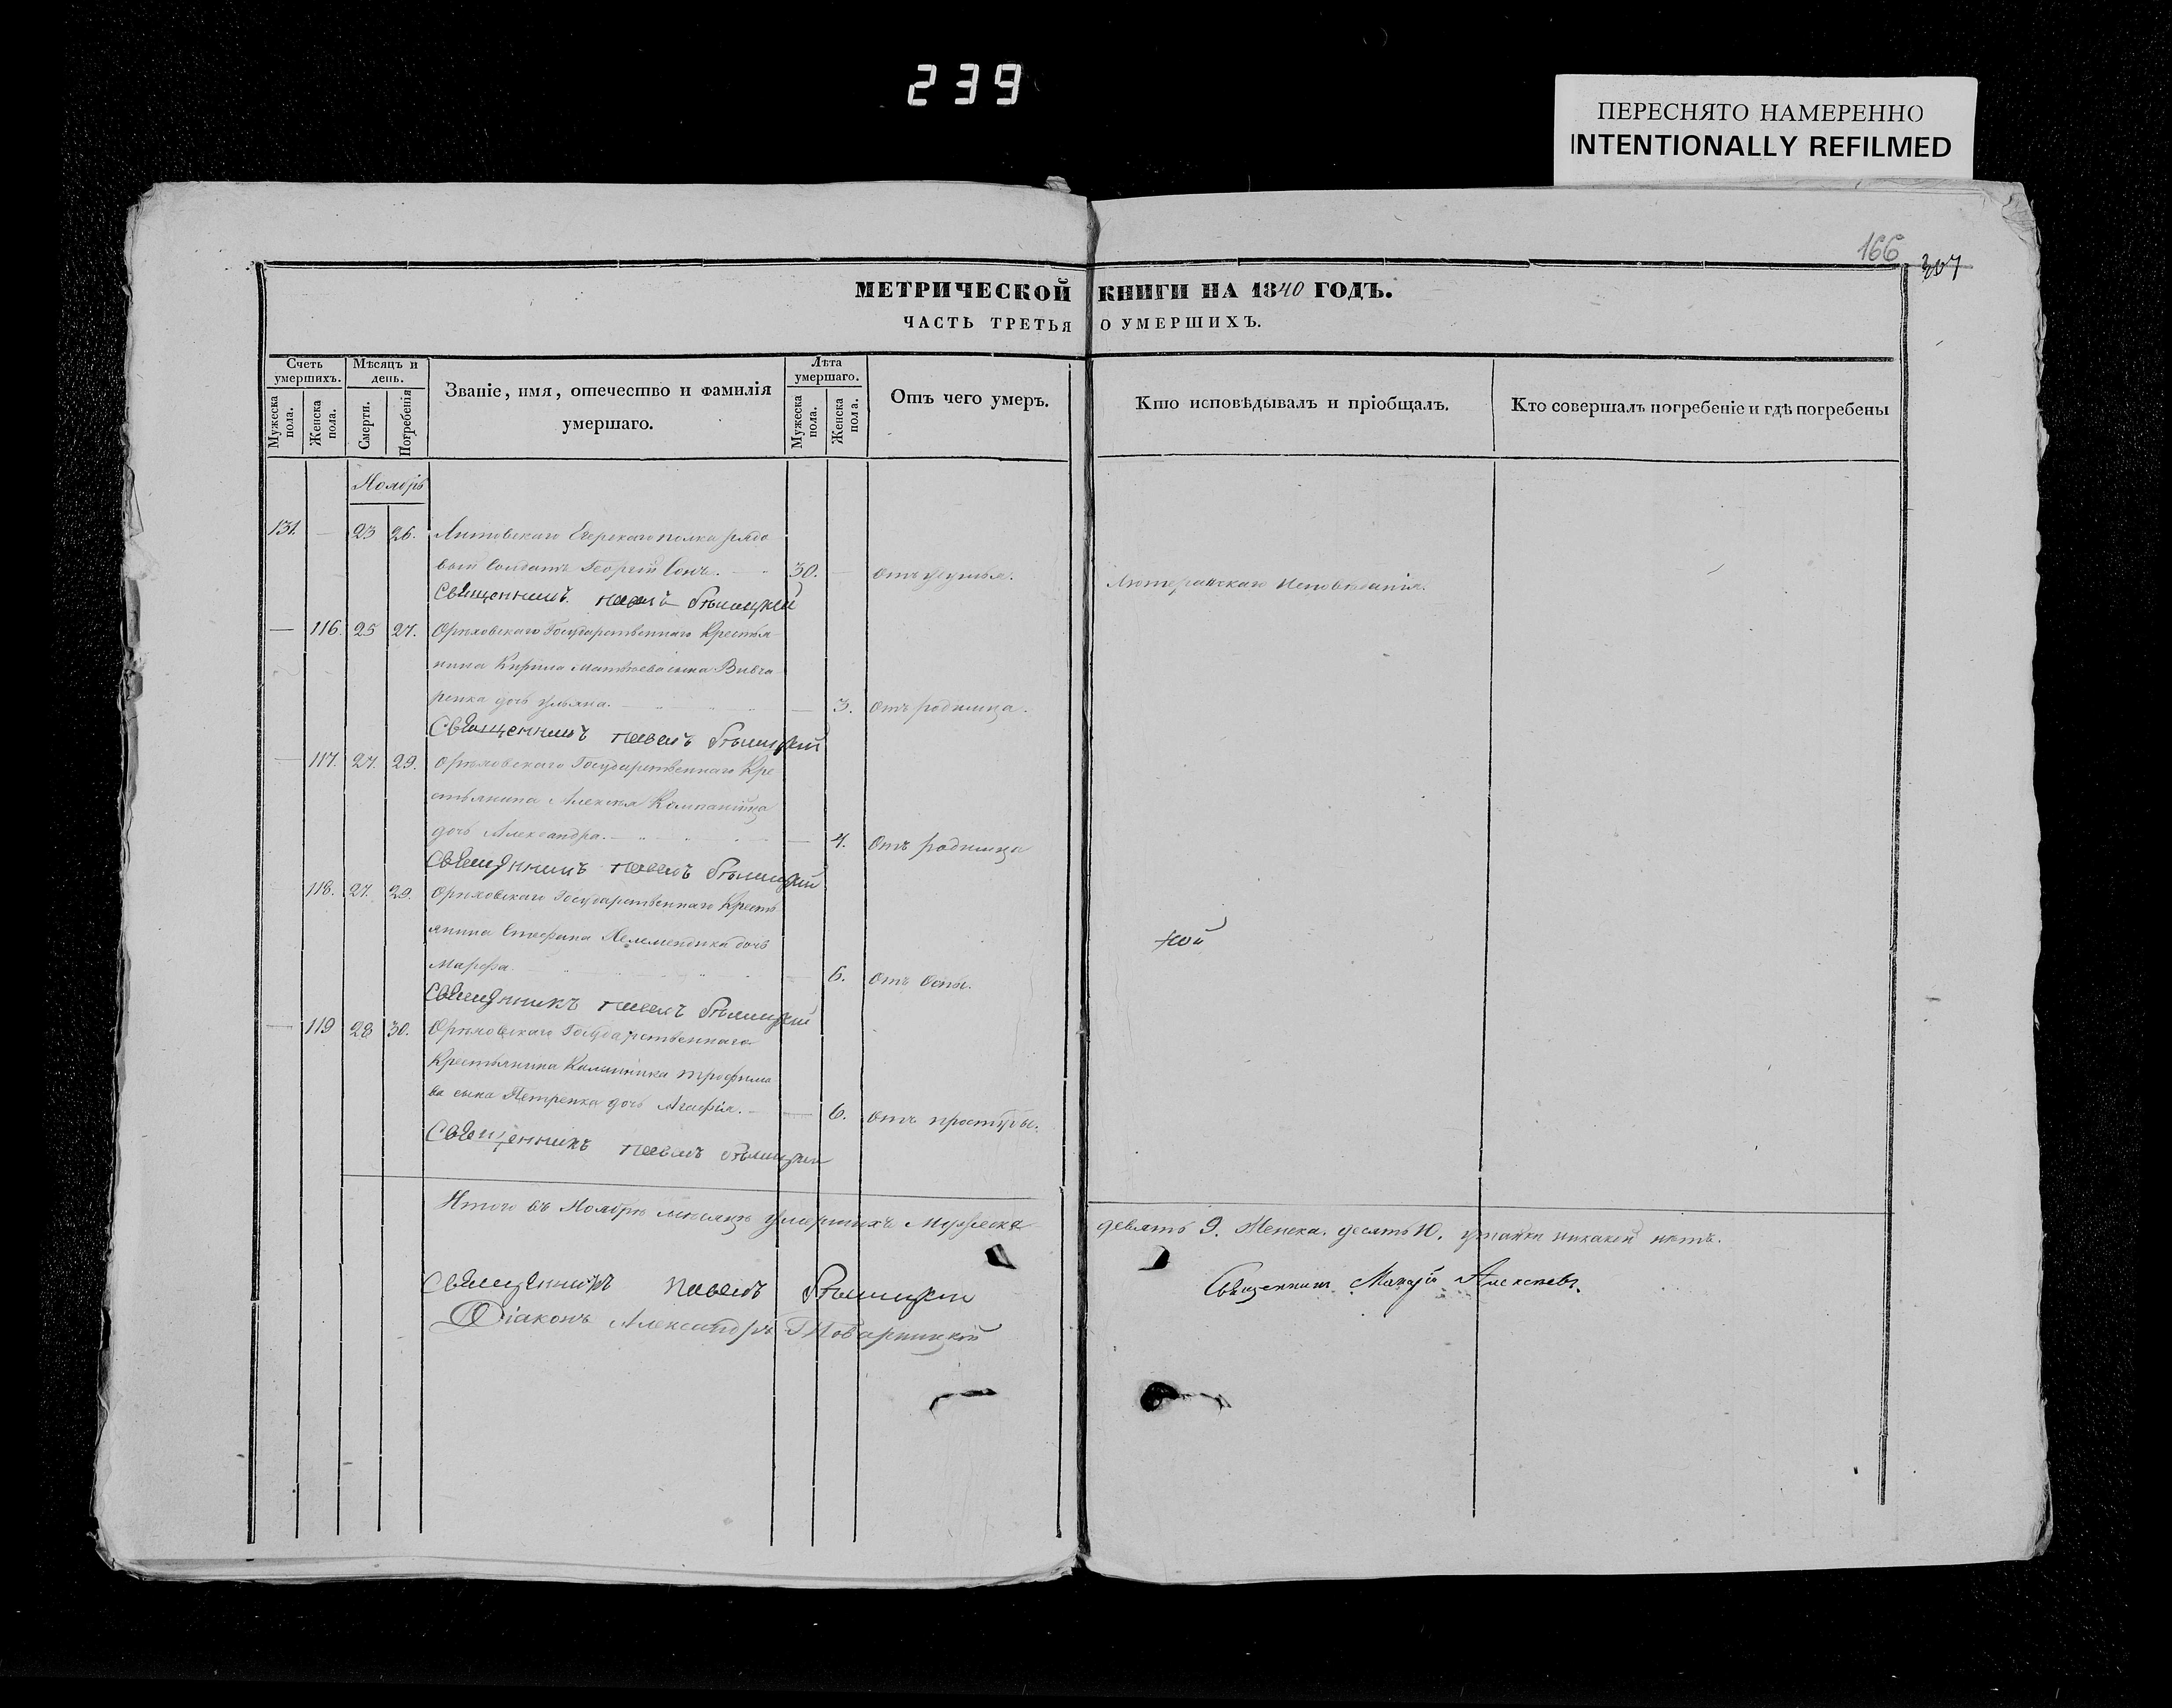 239
ПЕРЕСНЯТО НАМЕРЕННО
INTENTIONALLY REFILMED
166
307
МЕТРИЧЕСКОЙ КНИГИ НА 1840 ГОДЪ.
ЧАСТЬ ТРЕТЬЯ О УМЕРШИХЪ.
Счетъ умершихъ.
Мужеска пола.
Женска пола.
Мѣсяцъ и день.
Смерти.
Погребенія
Званіе, имя, отечество и фамилія умершаго.
Лѣта умершаго.
Мужеска пола.
Женска пола.
Отъ чего умеръ.
Кто исповѣдывалъ и пріобщалъ.
Кто совершалъ погребеніе и гдѣ погребены
Ноябрь
131. — 23 26. Литовскаго Егерскаго полка рядо
вый Солдатъ Георгій 30. — Отъ Лютеранскаго Исповѣданія.
Священникъ Павелъ Бѣлицкій
— 116. 25 27. Орѣховскаго Государственнаго Крестья
нина Кирила Матѳѣева сына Вивча
ренка дочь Ульяна. — 3. Отъ родимца.
Священникъ Павелъ Бѣлицкій
— 117. 27. 29. Орѣховскаго Государственнаго Кре
стьянина Алексѣя Компанійца
дочь Александра. — 4. Отъ родимца
Священникъ Павелъ Бѣлицкій
118. 27. 29. Орѣховскаго Государственнаго Кресть
янина Стефана дочь
Марфа 6. Отъ Оспы.
кой
Священникъ Павелъ Бѣлицкій
— 119 28 30. Орѣховскаго Государственнаго
Крестьянина Калинника Трофимо
ва сына Петренка дочь Агафія. — 6. Отъ простуды.
Священникъ Павелъ Бѣлицкій
Итого въ Ноябрѣ мѣсяцѣ умершихъ Мужеска девять 9. Женска. десять 10. утайки никакой нѣтъ.
Священникъ Павелъ Бѣлицкій
Священникъ Алексѣевъ.
Діаконъ Александръ